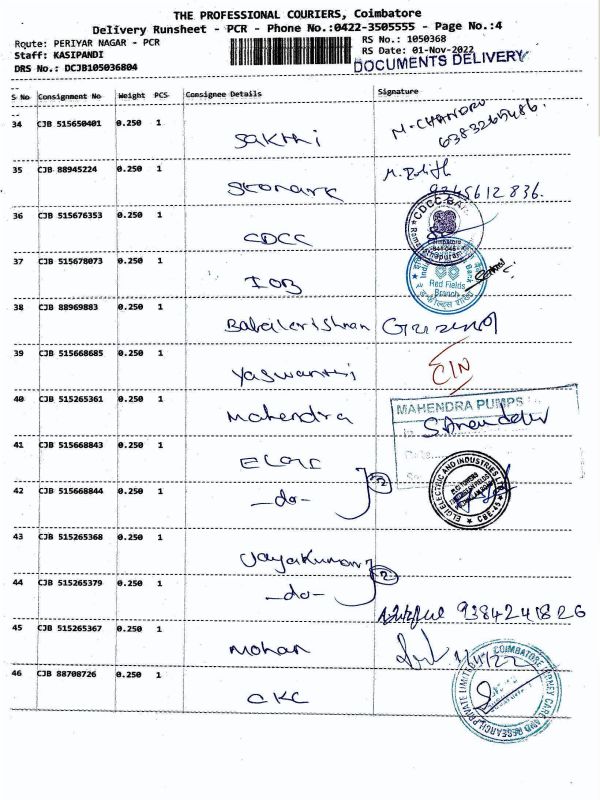 THE PROFESSIONAL COURIERS, Coimbatore
Delivery Runsheet - PCR - Phone No.:0422-3505555 - Page No.:4
Route: PERIYAR NAGAR - PCR
RS No.: 1050368
Staff: KASIPANDI
RS Date: 01-Nov-2022
DRS No.: DCJB105036804
DOCUMENTS DELIVERY
S No Consignment No Weight PCS Consignee Details Signature
34 CJB 515650401 0.250 1 Sakthi M-CHANDRU
6383265486.
35 CJB 88945224 0.250 1
9345612836.
36 CJB 515676353 0.250 1 CDCC
CDCC BANK
Ramanathapuram
Coimbatore
641 045
37 CJB 515678073 0.250 1 IOB
Red Fields
Branch
38 CJB 88969883 0.250 1 Balakrishnan
39 CJB 515668685 0.250 1 Yaswanthi
40 CJB 515265361 0.250 1 Mahendra
MAHENDRA PUMPS
Date
41 CJB 515668843 0.250 1 ELGI
ELGI ELECTRIC AND INDUSTRIES LTD
CBE-45
42 CJB 515668844 0.250 1 -do-
43 CJB 515265368 0.250 1 Jayakumar
44 CJB 515265379 0.250 1 -do- 2
9384241826
45 CJB 515265367 0.250 1 Mohan
1/11/22
46 CJB 88708726 0.250 1 CKC
COIMBATORE KIDNEY CARE AND RESEARCH PRIVATE LIMITED